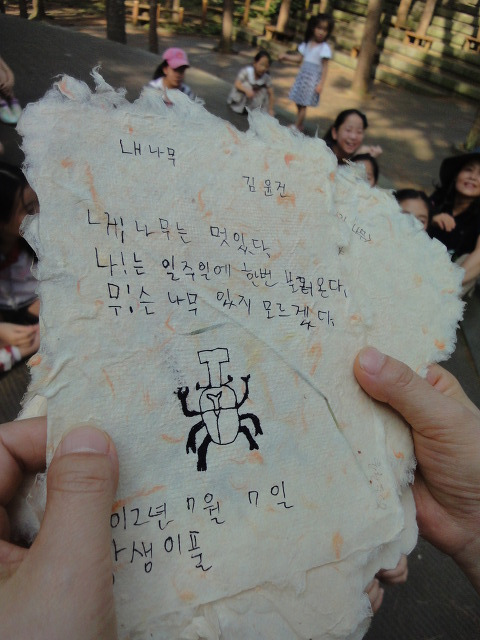 내 나무
김윤건
내! 나무는 멋있다.
나!는 일주일에 한번 보러온다.
무!슨 나무 있지 모르겠다.
012년 7월 7일
생이풀